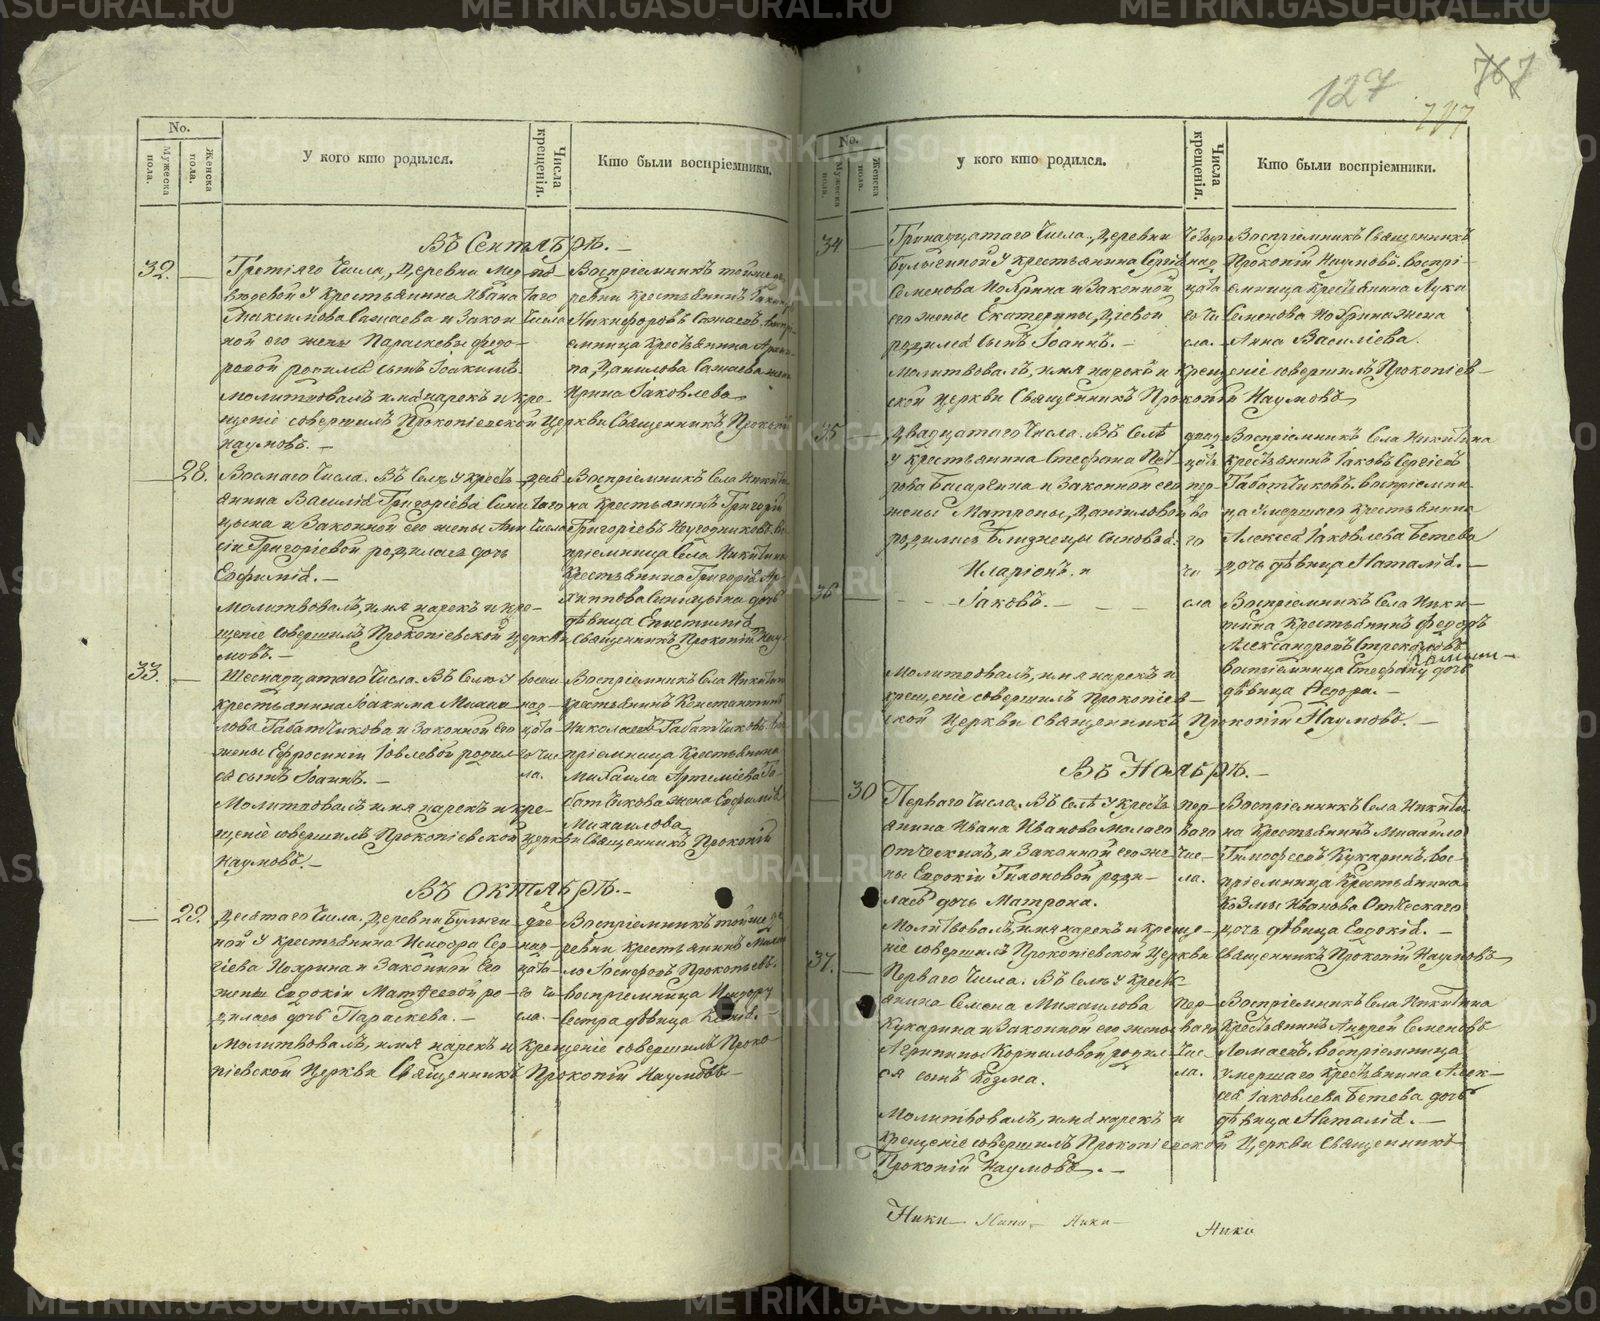 127
767
No.
Мужеска пола.
Женска пола.
У кого кто родился.
Числа крещенія.
Кто были воспріемники.
Въ Сентябрѣ. –
32.
Третіяго Числа, Деревни Мер-
вой у крестьянина Ивана
Максимова Сажаева и закон
ной его жены Параскевы Федо-
ровой родился сынъ Іоакимъ.
Молитвовалъ, имя нарекъ и кре-
щеніе совершилъ Прокопіевской Церкви Священникъ Прокопій
Наумовъ. –
пя
таго
Числа
Воспріемникъ тойже де
ревни крестьянинъ
Никифоровъ Сажаевъ, воспрі
емница крестьянина
па, Данилова Сажаева жена
Ирина Іаковлева
28.
Восмаго Числа. Въ Селѣ у крестъ
янина Василія Григоріева Сини
цына и законной его жены Ани
сіи Григоріевой родилась дочь
Евфимія. –
Молитвовалъ, имя нарекъ и кре-
щеніе совершилъ Прокопіевской Церкви Священникъ Прокопій Нау
мовъ. –
деся
таго
Числа
Воспріемникъ Села Никити
на крестьянинъ Григорій
Григоріевъ Неугодниковъ, вос
пріемница Села Никитина
крестьянина Григорія Ар
хиппова Синицына дочь
дѣвица Епистимія
33.
Шеснадцатаго Числа. Въ Селѣ у
крестьянина Іоакима Михаи
лова Габатчикова и законной его
жены Евфросиніи Іовлевой родил
ся сынъ Іоаннъ. –
Молитвовалъ имя нарекъ и кре-
щеніе совершилъ Прокопіевской Церкви Священникъ Прокопій
Наумовъ. –
восем
над
цата
го Чис
ла.
Воспріемникъ Села Никити
крестьянинъ Константинъ
Николаевъ Габатчиковъ, вос
пріемница крестьянина
Михаила Артеміева Га-
батчикова жена Евфимія
Михаилова
Въ Октябрѣ. –
29.
Десятаго Числа. Деревни Булыги
ной у крестьянина Исидора Сер
гіева Нохрина и законной его
жены Евдокіи Матѳеевой ро-
дилась дочь Параскева. –
Молитвовалъ, имя нарекъ и крещеніе совершилъ Проко
піевской Церкви Священникъ Прокопій Наумовъ –
две
над
цата
го Чи
сла. –
Воспріемникъ тойже де
ревни крестьянинъ Михаи
ло Іосифовъ Прокопьевъ.
воспріемница Исидору
Сестра дѣвица
No.
Мужеска пола.
Женска пола.
У кого кто родился.
Числа крещенія.
Кто были воспріемники.
34
Тринадцатаго Числа, Деревни
Булыгиной у крестьянина Сергія
Семенова Нохрина и законной
его жены Екатерины, Діевой
родился сынъ Іоаннъ. –
Молитвовалъ, имя нарекъ и крещеніе совершилъ Прокопіев –
ской Церкви Священникъ Прокопій Наумовъ
четыр
над
цата
го Чи
сла. –
Воспріемникъ Священникъ
Прокопій Наумовъ. воспрі –
емница крестьянина Луки
Семенова Нохрина жена
Анна Василіева.
35
Двадцатаго Числа. Въ Селѣ
у крестьянина Стефана Пет
рова и законной его
жены Матроны, Даниловой
родились близнецы сыновья.
Иларіонъ. и
36
Іаковъ. –
Молитвовалъ, имя нарекъ и
крещеніе совершилъ Прокопіев –
ской Церкви Священникъ Прокопій Наумовъ. –
двад
цать
пер
ва
го
Чи
сла
Воспріемникъ Села Никитина
крестьянинъ Іаковъ Сергіевъ
Габатчиковъ. воспріемни
ца умершаго крестьянина
Алексѣя Іаковлева Бетева
дочь дѣвица Наталія. –
Воспріемникъ Села Ники –
тина крестьянинъ Федоръ
Александровъ
воспріемница Стефану дочь
дѣвица Федора. –
Въ Ноябрѣ. –
30
Перваго Числа. Въ Селѣ у крестъ
янина Ивана Иванова Малаго
Отческихъ, и законной его же-
ны Евдокіи Тихоновой роди-
лась дочь Матрона.
Молитвовалъ, имя нарекъ и креще –
ніе совершилъ Прокопіевской Церкви Священникъ Прокопій Наумовъ
пер –
ваго
Чис-
ла.
Воспріемникъ Села Никити
на крестьянинъ Михаило
Тимофеевъ Кукаринъ. вос-
пріемница крестьянина
Козмы Иванова Отческаго
дочь дѣвица Евдокія. –
37.
Перваго Числа. Въ Селѣ у крестъ
янина Семена Михаилова
Кукарина и законной его жены
Агрипины Корниловой родил
ся сынъ Козма.
Молитвовалъ, имя нарекъ и
крещеніе совершилъ Прокопіевской Церкви Священникъ
Прокопій Наумовъ. –
пер
ваго
Чис-
ла.
Воспріемникъ Села Никитина
крестьянинъ Андрей Семеновъ
Ломаевъ. воспріемница
умершаго крестьянина Алек –
сѣя Іаковлева Бетева дочь
дѣвица Наталія. –
METRIKI.GASO-URAL.RU